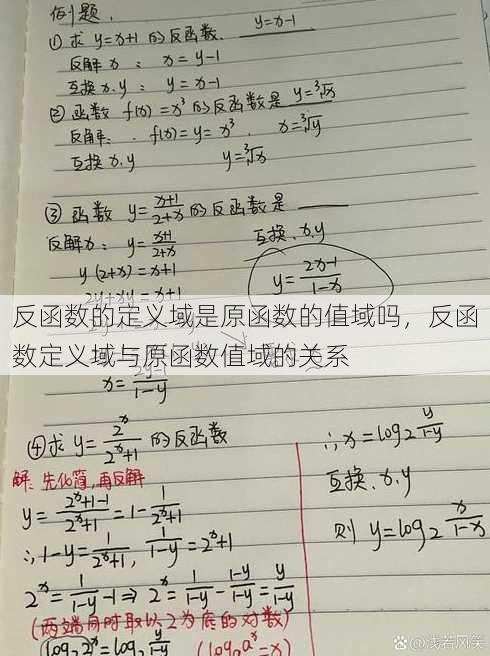 例题.
① 求 y=x+1 的反函数. y=x-1
反解 x: x=y-1
互换 x.y: y=x-1
② 函数 f(x)=x³ 的反函数是 y=∛x
反解: f(x)=y=x³. x=∛y
互换 x.y y=∛x
③ 函数 y=\frac{x+1}{2+x} 的反函数是 ____
反解x: y=\frac{x+1}{2+x} 互换.x.y
y(2+x)=x+1 y=\frac{2x-1}{1-x}
2y+xy=x+1
反函数的定义域是原函数的值域吗，反函
数定义域与原函数值域的关系
x=\frac{2y-1}{1-y}
④求 y=\frac{2^x}{2^x+1} 的反函数
解: 先化简,再反解
y=\frac{2^x+1-1}{2^x+1}=1-\frac{1}{2^x+1}
∴1-y=\frac{1}{2^x+1}, \frac{1}{1-y}=2^x+1
2^x=\frac{1}{1-y}-1⇒2^x=\frac{1}{1-y}-\frac{1-y}{1-y}=\frac{y}{1-y}
(两端同时取以2为底的对数)
log₂2^x=log₂\frac{y}{1-y} (logₐa^x=x)
∴x=log₂\frac{y}{1-y}
互换.x.y
则 y=log₂\frac{x}{1-x}
@浅若网笑